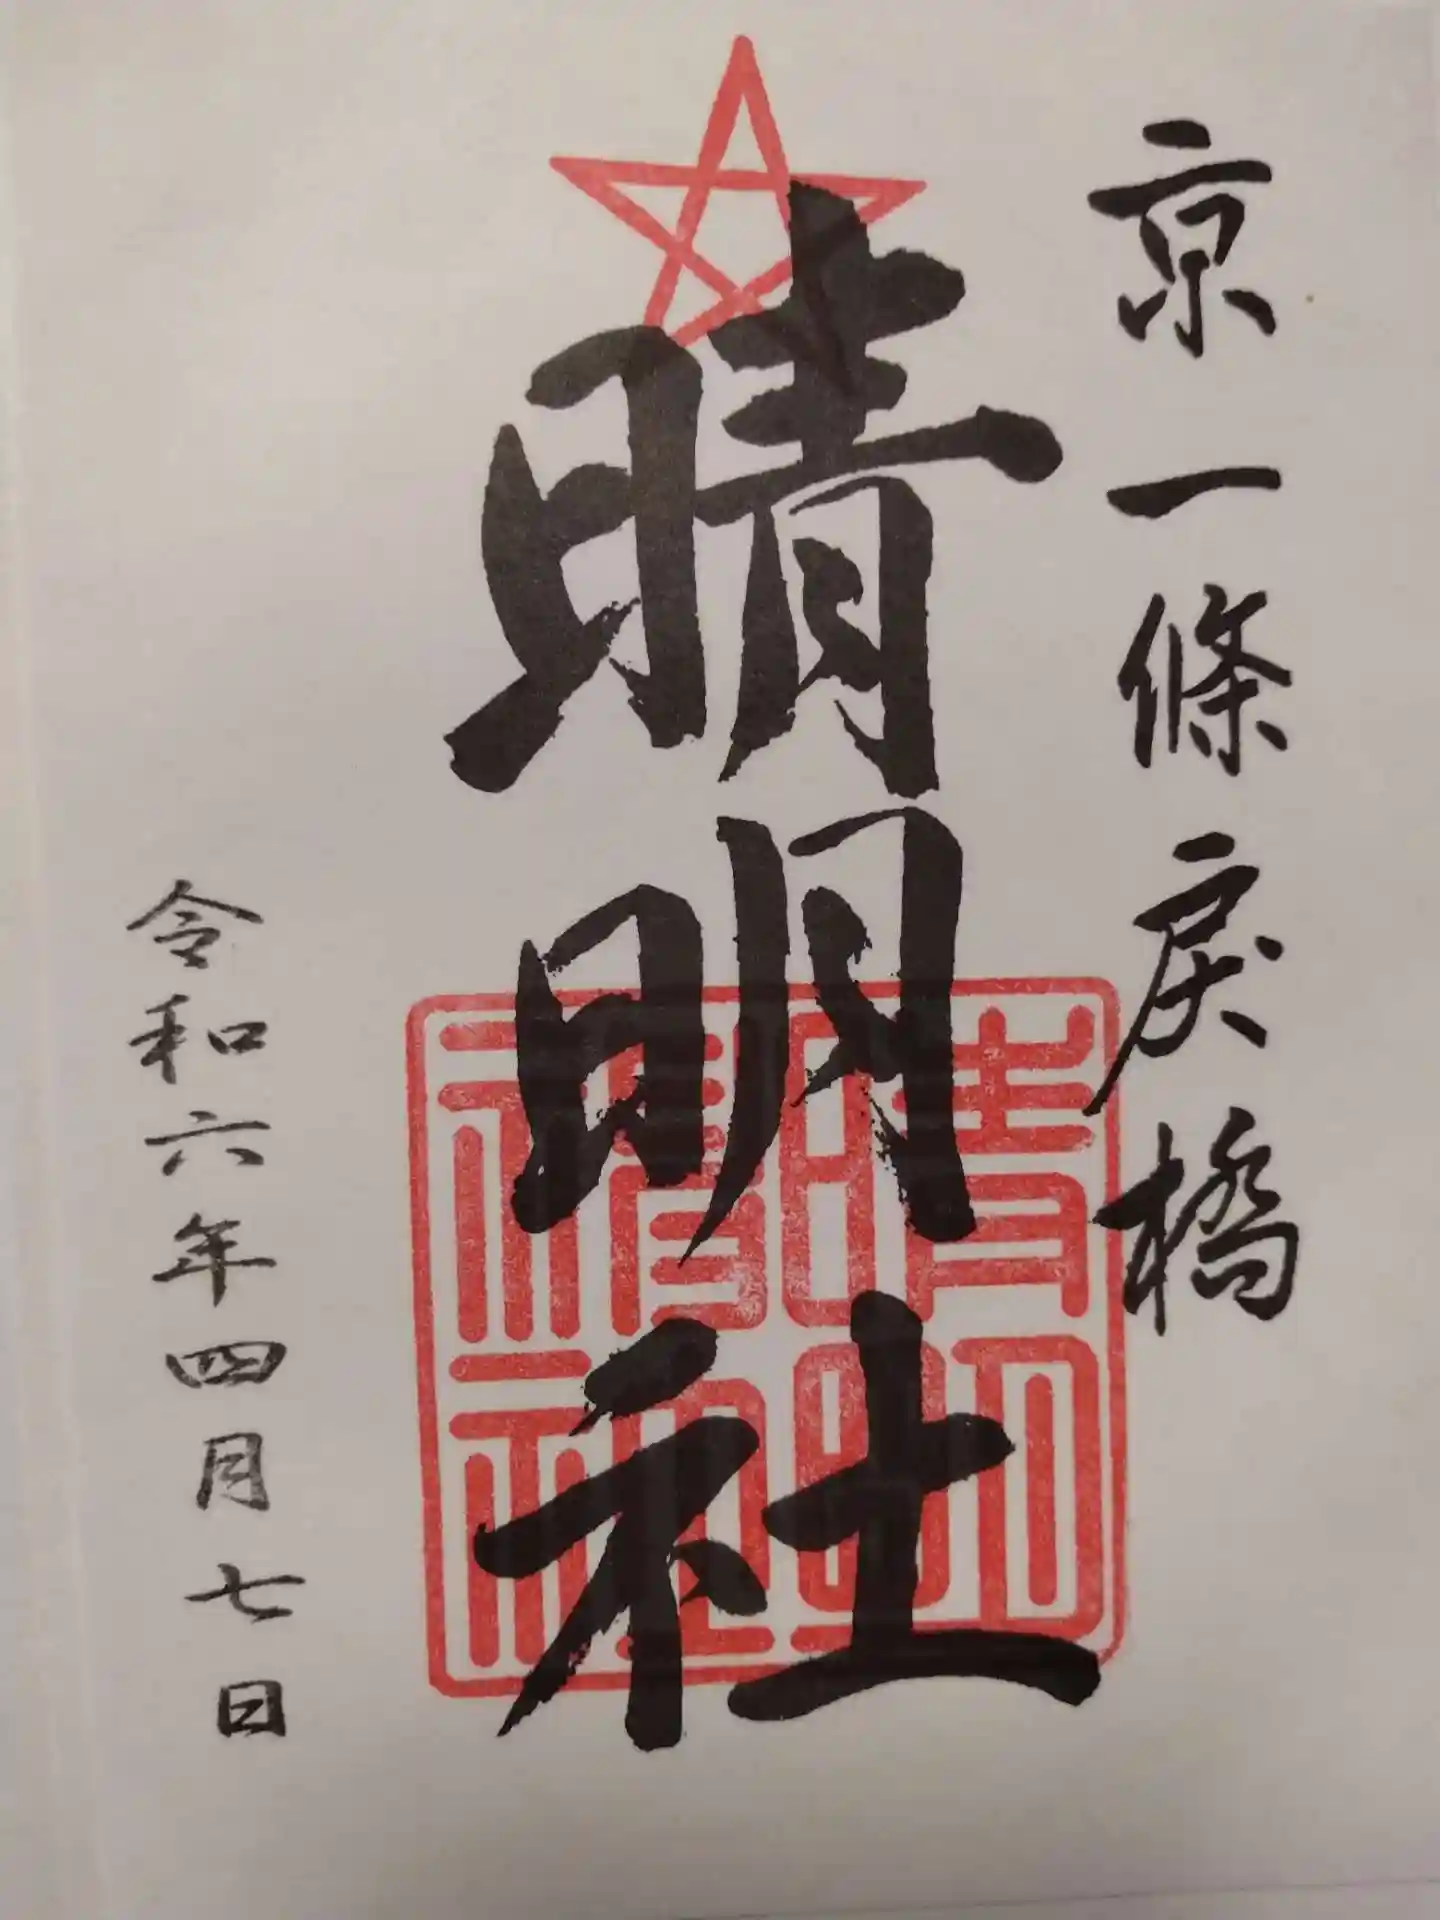 京一條戻橋
晴明社
令和六年四月七日